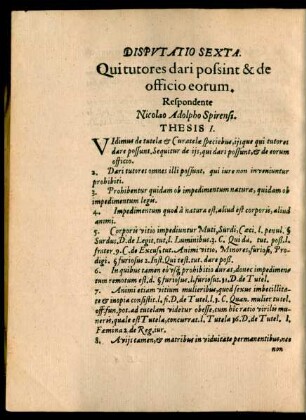 DISPVTATIO SEXTA.
Qui tutores dari possint & de
officio eorum.
Respondente
Nicolao Adolpho Spirensi.
THESIS I.
VIdimus de tutelæ & Curatelæ speciebus, ijsque qui tutores
dare possunt, Sequitur de iji, qui dari possunt, & de eorum
officio.
2. Dari tutores omnes illi possunt, qui iure non inveniuntur
prohibiti.
3. Prohibentur quidam ob impedimentum naturæ, quidam ob
impedimentum legis.
4. Impedimentum quod à natura est, aliud est corporis, aliud
animi.
5. Corporis vitio impediuntur Muti, Surdi, Cæci l. penul. §
Surdus, D. de Legit. tut. l. Luminibus 2. C. Qui da, tut. poss. l.
frater 9. C. de Excus. tut. Animi vitio, Minores, furiosi, Pro-
digi. § furiosus 2. Inst. Qui test. tut. dare poss.
6. In quibus tamen eousq; prohibitio durat, donec impedimen-
tum remotum est, d. § furiosus, l. furiosus 11. D de Tutel.
7. Animi etiam vitium mulieribus, quod sexus imbecillita-
te & inopia consistit. l. fi. D. de Tutel. l. 1. C. Quan. mulier tutel.
off. fun. pot. ad tutelam videtur obesse, cum hic ratio virilis mu-
neris, quale est Tutela, concurrat. l. Tutela 16. D. de Tutel. l.
Fœmina 2. de Reg. iur.
8. Avijs tamen, & matribus in viduitate permanentibus, nec
non